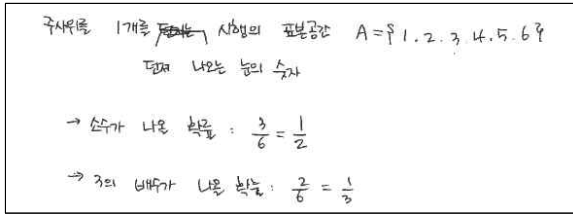 주사위를 1개를 던지는 시행의 표본공간 A = { 1. 2. 3. 4. 5. 6 }
던져 나오는 눈의 숫자
→ 소수가 나올 확률 : 3/6 = 1/2
→ 3의 배수가 나올 확률 : 2/6 = 1/3